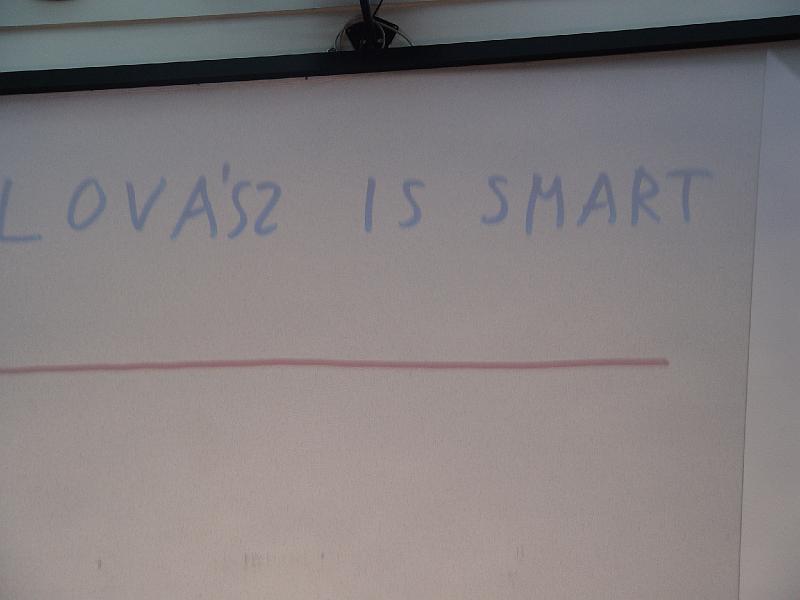 LOVÁSZ IS SMART